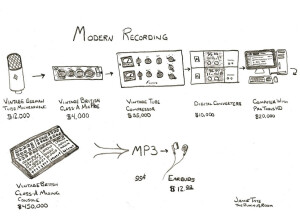 MODERN RECORDING
VINTAGE GERMAN
TUBE MICROPHONE
$12,000
VINTAGE BRITISH
CLASS-A MIC PRE
$4,000
VINTAGE TUBE
COMPRESSOR
DIGITAL CONVERTERS
$10,000
COMPUTER WITH
PRO TOOLS HD
$20,000
VINTAGE BRITISH
CLASS-A MIXING
CONSOLE
$450,000
MP3
99¢
EARBUDS
$12.98